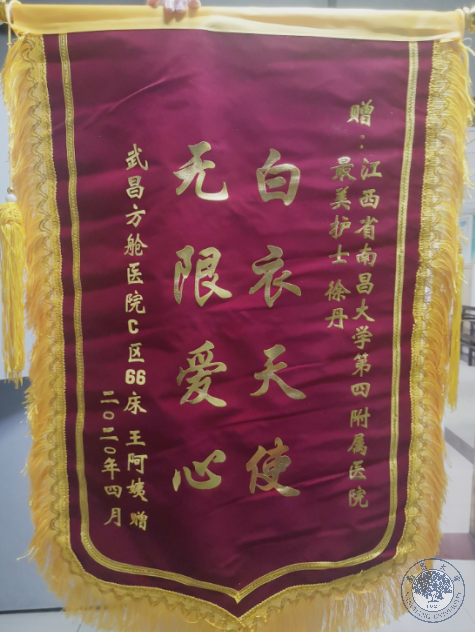 赠：江西省南昌大学第四附属医院
最美护士 徐丹
白衣天使
无限爱心
武昌方舱医院C区66床 王阿姨 赠
二〇二〇年四月